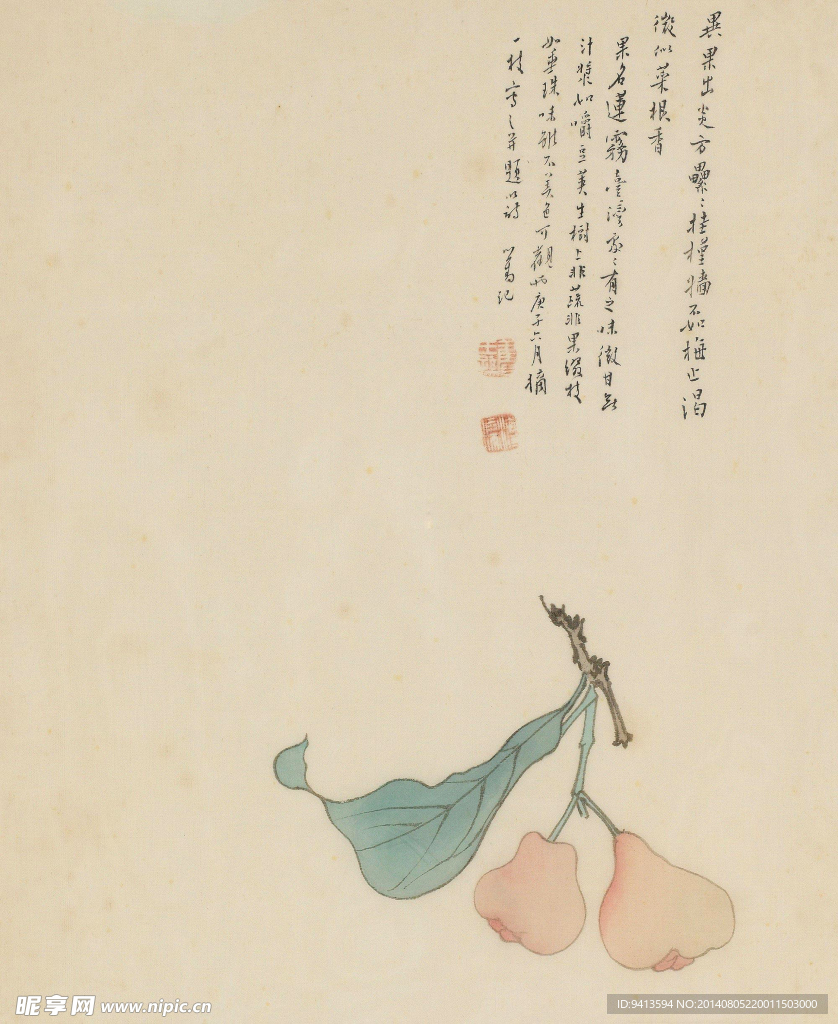 異果出炎方纍〻挂槿牆不如梅止渴
微似菜根香
果名蓮霧臺灣處〻有之味微甘無
汁漿如嚼豆莢生樹上非蔬非果綴枝
如垂珠味雖不美色可觀也庚子六月摘
一枝寫之并題以詩 心畬記
昵享网 www.nipic.cn
ID:9413594 NO:20140805220011503000